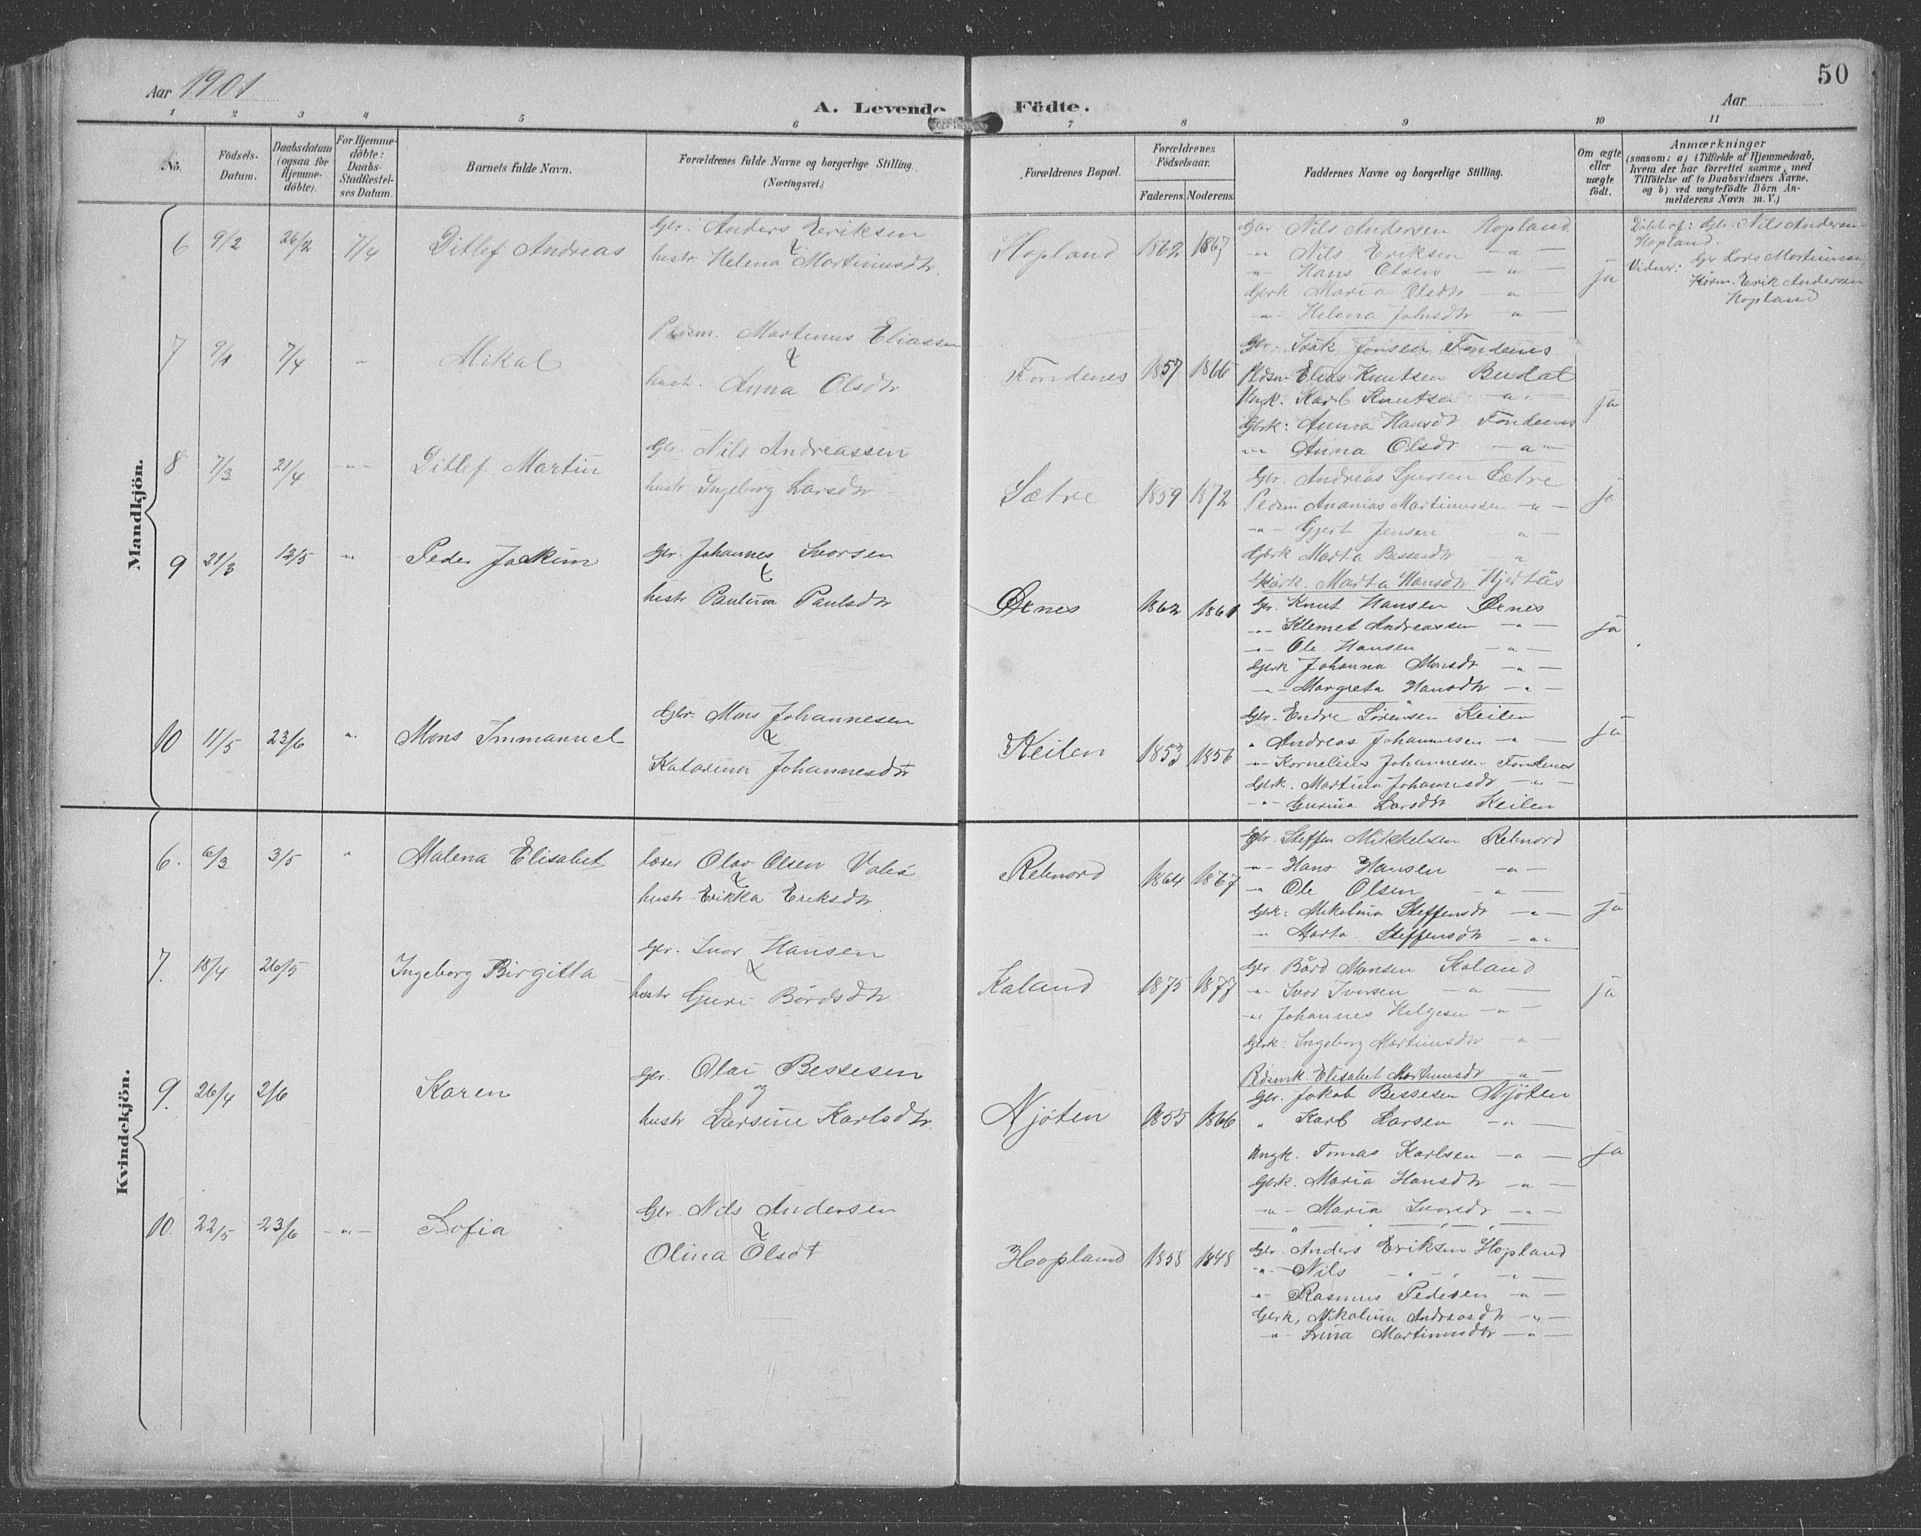 50
Aar 1901
A. Levende Födte.
Aar
1 2 3 4 5 6 7 8 9 10 11
No.
Födsels-Datum.
Daabsdatum (ogsaa for Hjemme-döbte).
For Hjemme-döbte: Daabs-Stadfæstel-ses Datum.
Barnets fulde Navn.
Forældrenes fulde Navne og borgerlige Stilling. (Næringsvei.)
Forældrenes Bopæl.
Forældrenes Födselsaar.
Faderens. Moderens.
Faddernes Navne og borgerlige Stilling.
Om ægte eller uægte födt.
Anmærkninger
(saasom: a) i Tilfælde af Hjemmedaab,
hvem der har forrettet samme, med
Tilföielse af to Daabsvidners Navne,
og b) ved uægtefödte Börn An-
melderens Navn m. V.)
Mandkjön.
6 9/2 26/2 7/4 Ditlef Andreas
Gbr. Anders Eriksen
hustr Helena Martinusdtr.
Hopland 1862 1867
Gbr Nils Andersen Hopland
-"- Nils Eriksen -"-
-"- Hans Olsen -"-
Gbrk Maria Olsdtr -"-
-"- Helena Johnsdtr -"-
ja
Döbt af: Gbr. Nils Andersen
Hopland.
Vidner: Gbr Lars Martinussen
Erik Andersen
Hopland
7 9/1 7/4 " Mikal
Pldsm. Martinus Eliassen
hustr. Anna Olsdtr
Fondenes 1857 1866
Gbr. Isak Jonsen Fondenes
Pldsm Elias Knutsen Budal
Ungk. Karl Knutsen -"-
Gbrk: Anna Hansdtr Fondenes
-"- Anna Olsdtr -"-
ja
8 7/3 21/4 -"- Ditlef Martin
Gbr. Nils Andreassen
hustr Ingeborg Larsdtr
Sætre 1859 1872
Gbr. Andreas Sjursen Sætre
Pldsm Ananias Martinussen -"-
-"- Gjert Jensen -"-
Gbrk Marta Bessesdtr "
Marta Hansdtr Hjertås
ja
9 21/3 12/5 -"- Peder Joakim
Gbr. Johannes Ivorsen
hustr Paulina Paulsdtr
Øenes 1862 1861
Gbr. Knut Hansen Øenes
-"- Klemet Andreassen -"-
-"- Ole Hansen -"-
Gbrk Johanna Monsdtr -"-
-"- Margreta Hansdtr -"-
ja
10 11/5 23/6 " Mons Immanuel
Gbr. Mons Johannesen
Katarina Johannesdtr
Keilen 1853 1856
Gbr. Endre Sørensen Keilen
" Andreas Johannesen -"-
-"- Kornelius Johannesen Fondenes
Gbrk. Martina Johannesdtr -"-
-"- Gurina Larsdtr Keilen
ja
Kvindekjön.
6. 6/3 3/5 " Malena Elisabet
lærer Olav Olsen
hustr. Erikka Eriksdtr.
Rebnord 1864 1867
Gbr. Steffen Mikkelsen Rebnord
-"- Hans Hansen -"-
-"- Ole Olsen -"-
Gbrk: Mikalina Steffensdtr -"-
-"- Marta Steffensdtr -"-
ja
7. 18/4 26/5 Ingeborg Birgitta
Gbr. Ivor Hansen
hustr Guri Bårdsdtr
Kaland 1875 1877
Gbr. Bård Monsen Kaland
-"- Ivor Iversen -"-
-"- Johannes Helgesen -"-
Gbrk: Ingeborg Martinusdtr -"-
Elisabet Martinusdtr -"-
ja
9. 26/4 2/6 Karen
Gbr. Olai Bessesen
og
hustr Larsine Karlsdtr.
Njøten 1855 1866
Gbr. Jakob Bessesen Njøten
" Karl Larsen -"-
Ungk. Tomas Karlsen -"-
Gbrk. Maria Hansdtr -"-
-"- Maria Ivorsdtr -"-
ja
10. 22/5 23/6 -"- Sofia
Gbr. Nils Andersen
Olina Olsdt
Hopland 1858 1848
Gbr. Anders Eriksen Hopland
-"- Nils -"- -"-
-"- Rasmus Pedersen -"-
Gbrk, Mikalina Andreasdtr -"-
-"- Martinusdtr -"-